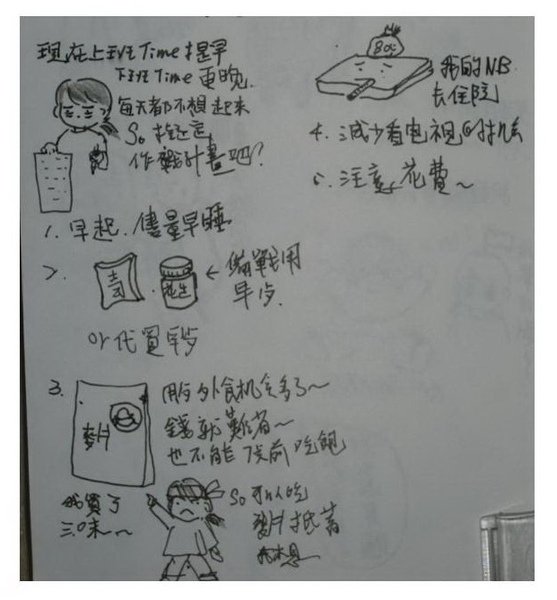 現在上班Time提早
下班Time更晚
每天都不想起來
So 擬定
作戰計畫吧?
1. 早起、儘量早睡
2.
吐司
花生
← 備戰用
早歺
or 代買早歺
3.
麥片
外食机会多了~
錢就難省~
也不能 吃飽
我買了
三口味~
So 吃
麥片抵著
80℃
我的NB
去住院
4. 減少看電視的机会
5. 注意花費~